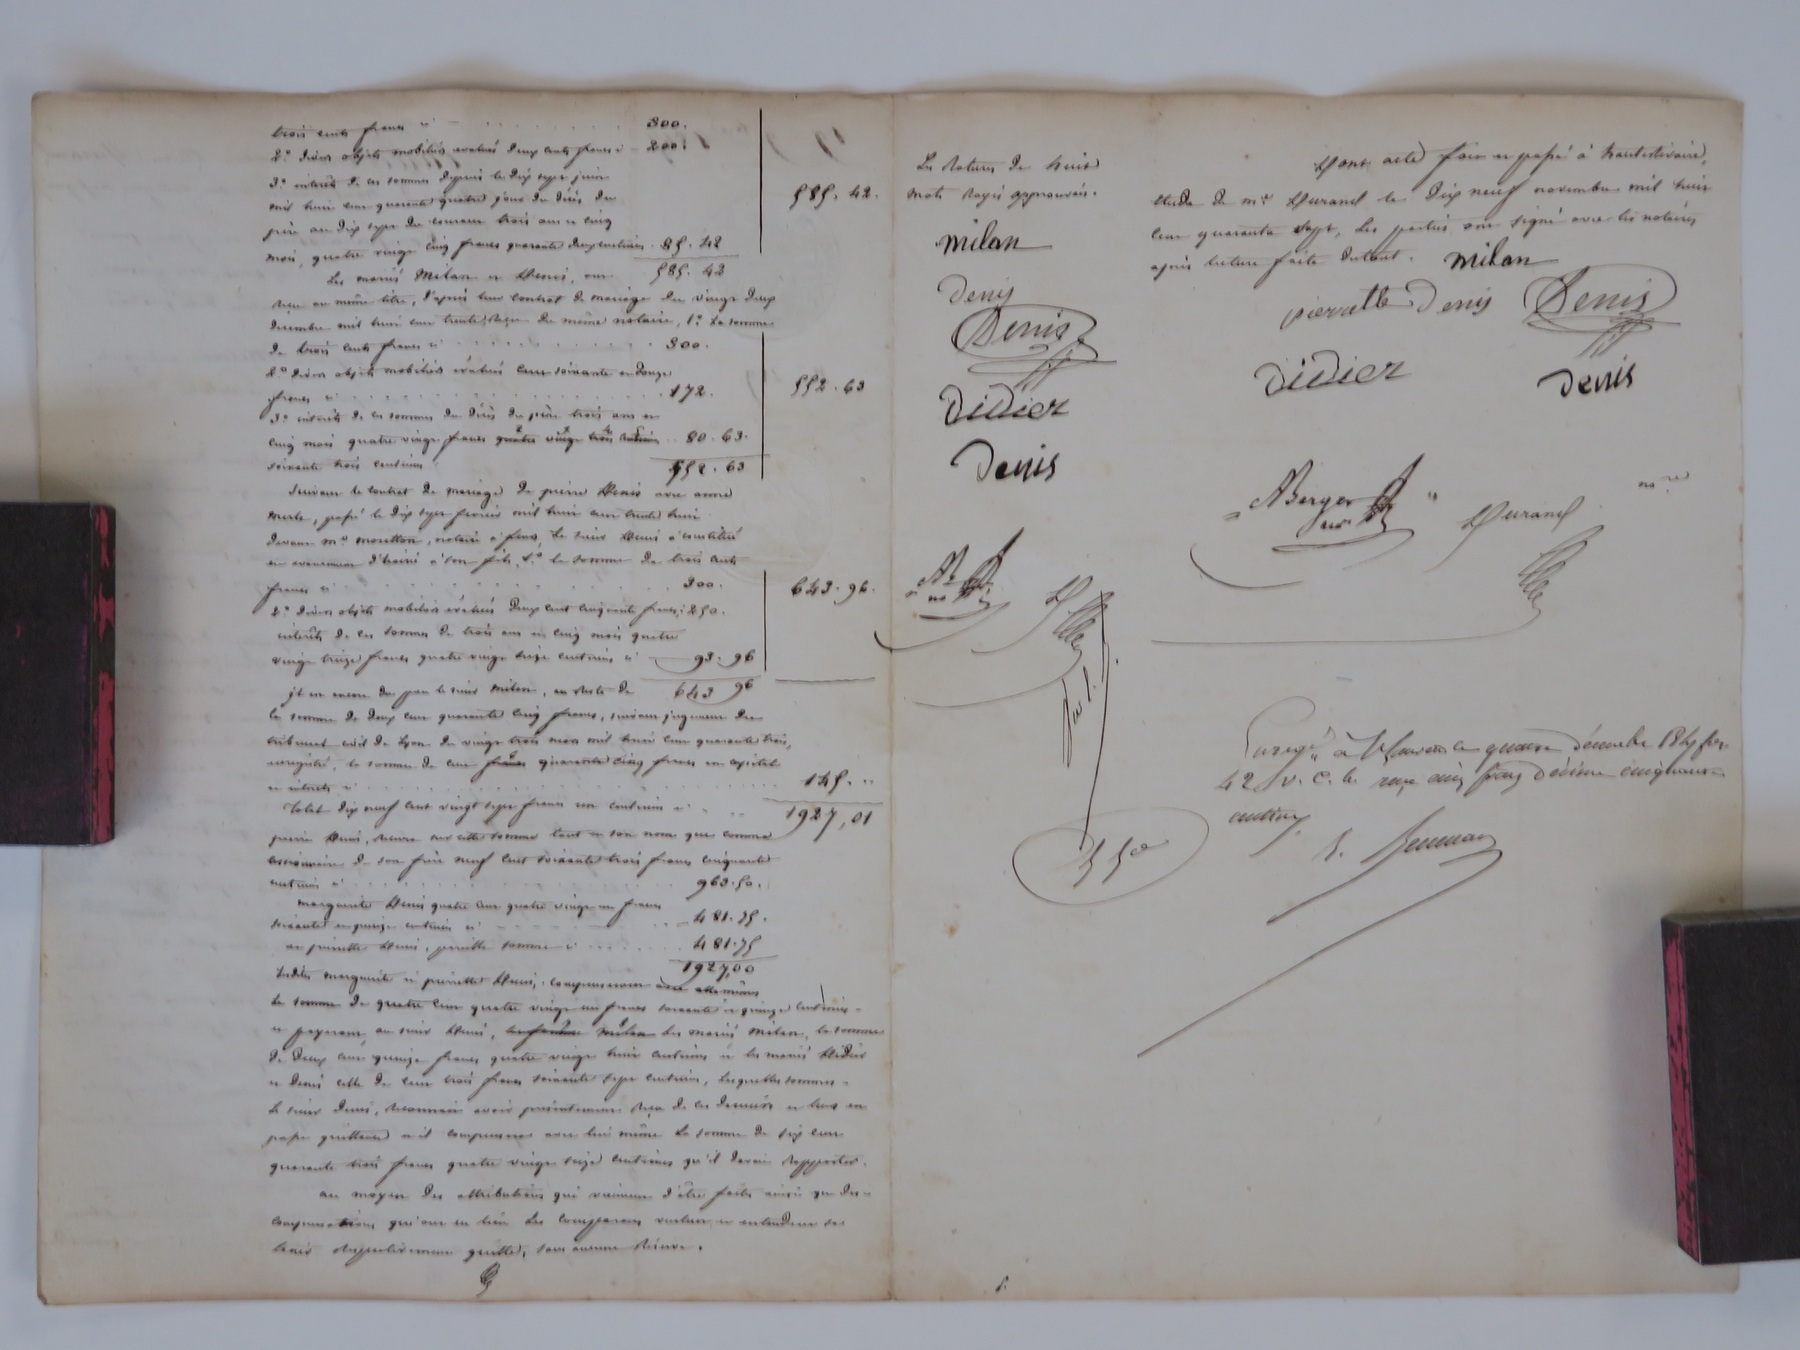 trois cents francs ci 300.
2.° divers objets mobiliers évalués deux cents francs ci 200.
3.° intérêts de ces sommes depuis le dix sept juin
mil huit cent quarante quatre jour du décès du
père au dix sept du courant trois ans et cinq
mois, quatre vingt cinq francs quarante deux centimes. 85. 42
585. 42 585. 42.
Les mariés Milan et Denis, ont
reçu au même titre, d'après leur contrat de mariage du vingt deux
décembre mil huit cent trente du même notaire, 1.° La somme
de trois cents francs ci 300.
2.° divers objets mobiliers évalués cent soixante et douze
francs ci 172. 552. 63
3.° intérêts de ces sommes du décès du père trois ans et
cinq mois quatre vingt francs quatre vingt trois centimes 80. 63.
soixante trois centimes 552. 63
Suivant le contrat de mariage de pierre Denis avec anne
Merle, passé le dix sept février mil huit cent trente huit
devant m.e notaire à le sieur Denis a constitué
en avancement d'hoirie à son fils, 1.° la somme de trois cents
francs ci 300. 643. 96.
2.° divers objets mobiliers évalués deux cent cinquante francs ci 250.
intérêts de ces sommes de trois ans et cinq mois quatre
vingt treize francs quatre vingt seize centimes ci 93. 96
il est encore du par le sieur Milan, en reste de 643 96
la somme de deux cent quarante cinq francs, suivant jugement du
tribunal civil de Lyon du vingt trois mars mil huit cent quarante trois,
enregistré, la somme de cent quarante cinq francs en capital
et intérêts ci 145. "
Total dix neuf cent vingt sept francs un centime ci 1927, 01
pierre Denis, retire sur cette somme tant en son nom que comme
cessionnaire de son frère neuf cent soixante trois francs cinquante
centimes ci 963. 50.
marguerite Denis quatre cent quatre vingt un francs
soixante et quinze centimes ci 481. 75.
et pierrette Denis, pareille somme ci 481. 75
1927,00
Lesdites marguerite et pierrette Denis, compenseront avec elles mêmes
la somme de quatre cent quatre vingt un francs soixante et quinze centimes
et payeront au sieur Denis, Milan les mariés Milan, la somme
de deux cent quinze francs quatre vingt huit centimes et les mariés Didier
et Denis celle de cent trois francs soixante sept centimes, lesquelles sommes
le sieur Denis, reconnait avoir présentement reçu de ces derniers et leur en
passe quittance et il compensera avec lui même la somme de six cent
quarante trois francs quatre vingt seize centimes qu'il devait rapporter.
au moyen des attributions qui viennent d'être faites ainsi que des
compensations qui ont eu lieu les comparans veulent et entendent se
tenir respectivement quittes, sans aucune réserve.
La Rature de huit
mots rayés approuvée.
Milan
Denis
Denis
Didier
Denis
Dont acte fait et passé à
étude de m.e Durand le dix neuf novembre mil huit
cent quarante sept, Les parties ont signé avec les notaires
après lecture faite du tout. Milan
pierrette Denis Denis
Didier Denis
Berger Durand
not.re
Enreg.é à le quatre décembre 1847 fol
42 v. c. 6. reçu cinq francs décime cinquante
centimes